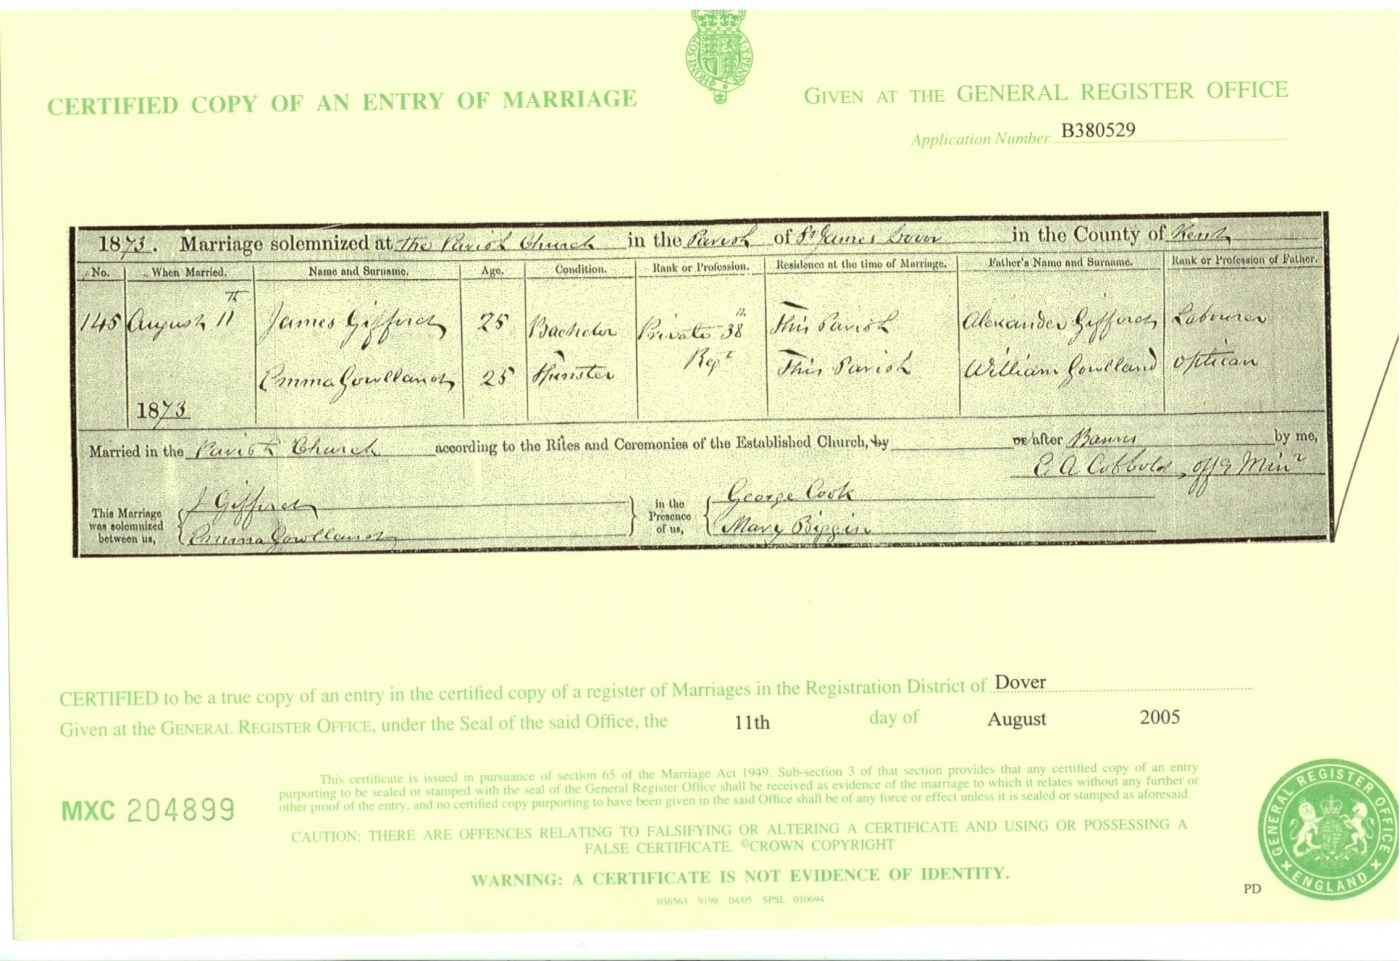 CERTIFIED COPY OF AN ENTRY OF MARRIAGE
GIVEN AT THE GENERAL REGISTER OFFICE
Application Number B380529
1873. Marriage solemnized at the Parish Church in the Parish of St James Dover in the County of Kent
No. When Married. Name and Surname. Age. Condition. Rank or Profession. Residence at the time of Marriage. Father's Name and Surname. Rank or Profession of Father.
145 August 11th James Gifford 25 Bachelor Private 38th This Parish Alexander Gifford Labourer
Regt
Emma Gowlland 25 Spinster This Parish William Gowlland Optican
1873
Married in the Parish Church according to the Rites and Ceremonies of the Established Church, by or after Banns by me,
E A Cobbold, offg Minr
This Marriage was solemnized between us,
J Gifford
Emma Gowlland
in the Presence of us,
George Cook
Mary Biggin
CERTIFIED to be a true copy of an entry in the certified copy of a register of Marriages in the Registration District of Dover
Given at the GENERAL REGISTER OFFICE, under the Seal of the said Office, the 11th day of August 2005
This certificate is issued in pursuance of section 65 of the Marriage Act 1949. Sub-section 3 of that section provides that any certified copy of an entry
purporting to be sealed or stamped with the seal of the General Register Office shall be received as evidence of the marriage to which it relates without any further or
other proof of the entry, and no certified copy purporting to have been given in the said Office shall be of any force or effect unless it is sealed or stamped as aforesaid.
MXC 204899
CAUTION: THERE ARE OFFENCES RELATING TO FALSIFYING OR ALTERING A CERTIFICATE AND USING OR POSSESSING A
FALSE CERTIFICATE. ©CROWN COPYRIGHT
WARNING: A CERTIFICATE IS NOT EVIDENCE OF IDENTITY.
036563 9198 04/05 SPSL 010694
PD
GENERAL REGISTER OFFICE
ENGLAND